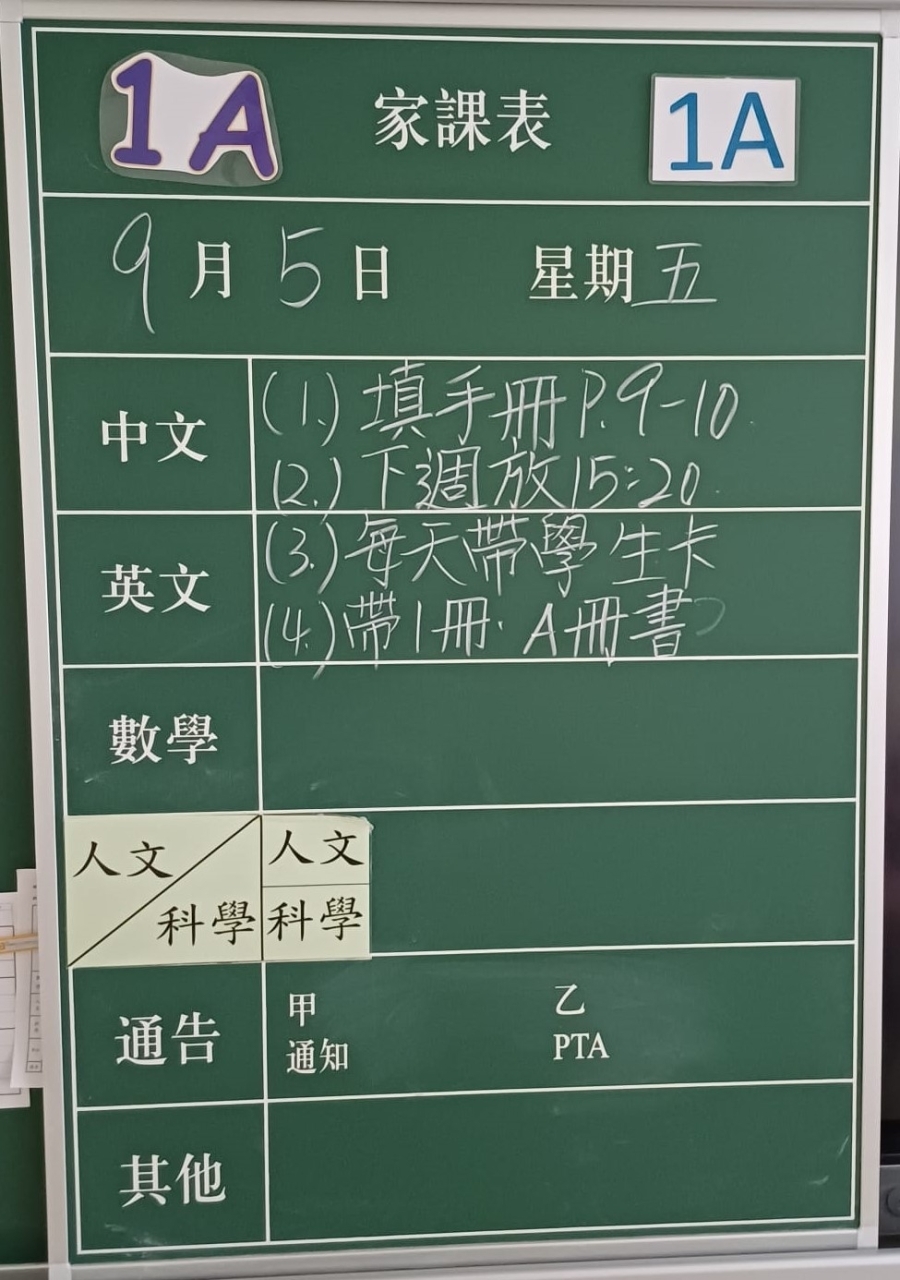 1A 家課表 1A
9月5日 星期五
中文 (1.) 填手冊P.9-10.
(2.) 下週放15:20.
英文 (3.) 每天帶學生卡
(4.) 帶1冊. A冊書
數學
人文 人文
科學 科學
通告 甲 乙
通知 PTA
其他